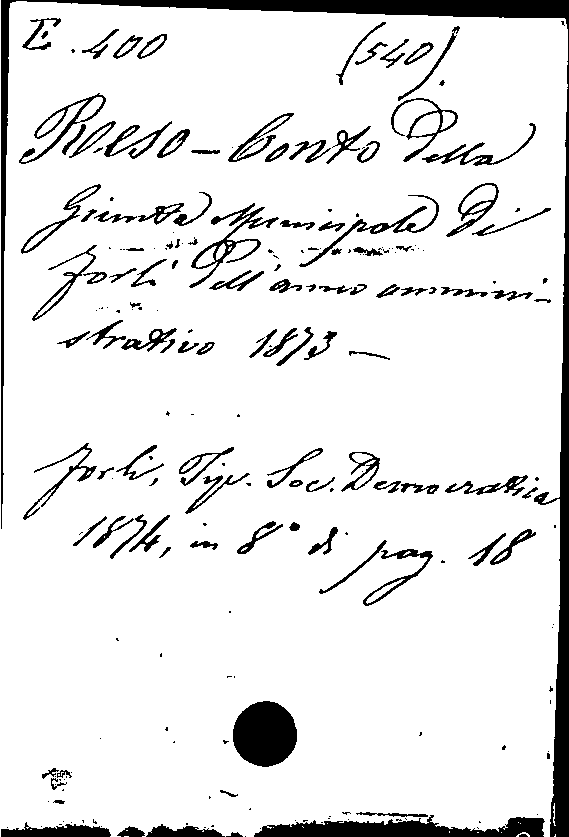 E. 400 (540).
Reso-Conto della
Giunta Municipale di
Forlì dell'anno ammini-
strativo 1873 —
Forlì, Tip. Soc. Democratica
1874, in 8° di pag. 18